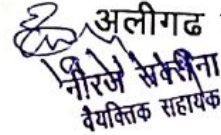 अलीगढ
नीरज सक्सेना
वैयक्तिक सहायक